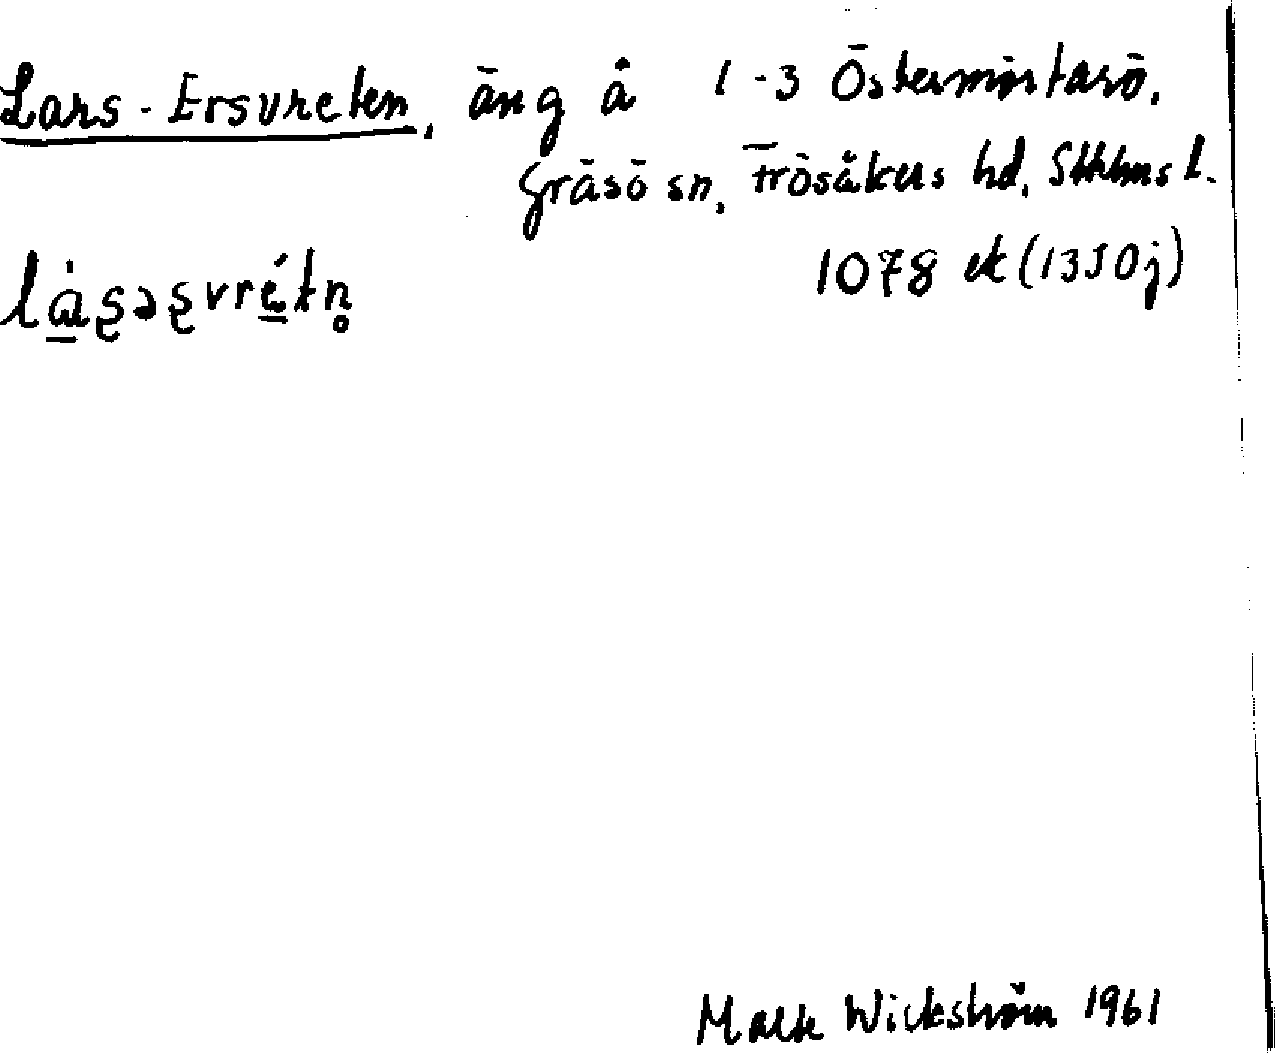 Lars-Ersvreten, äng å 1-3 Östermörtarö,
Gräsö sn, Frösåkers hd, Sthlms l.
låṣəṣvrétn̥ 1078 ek (13I0j)
Malte Wickström 1961